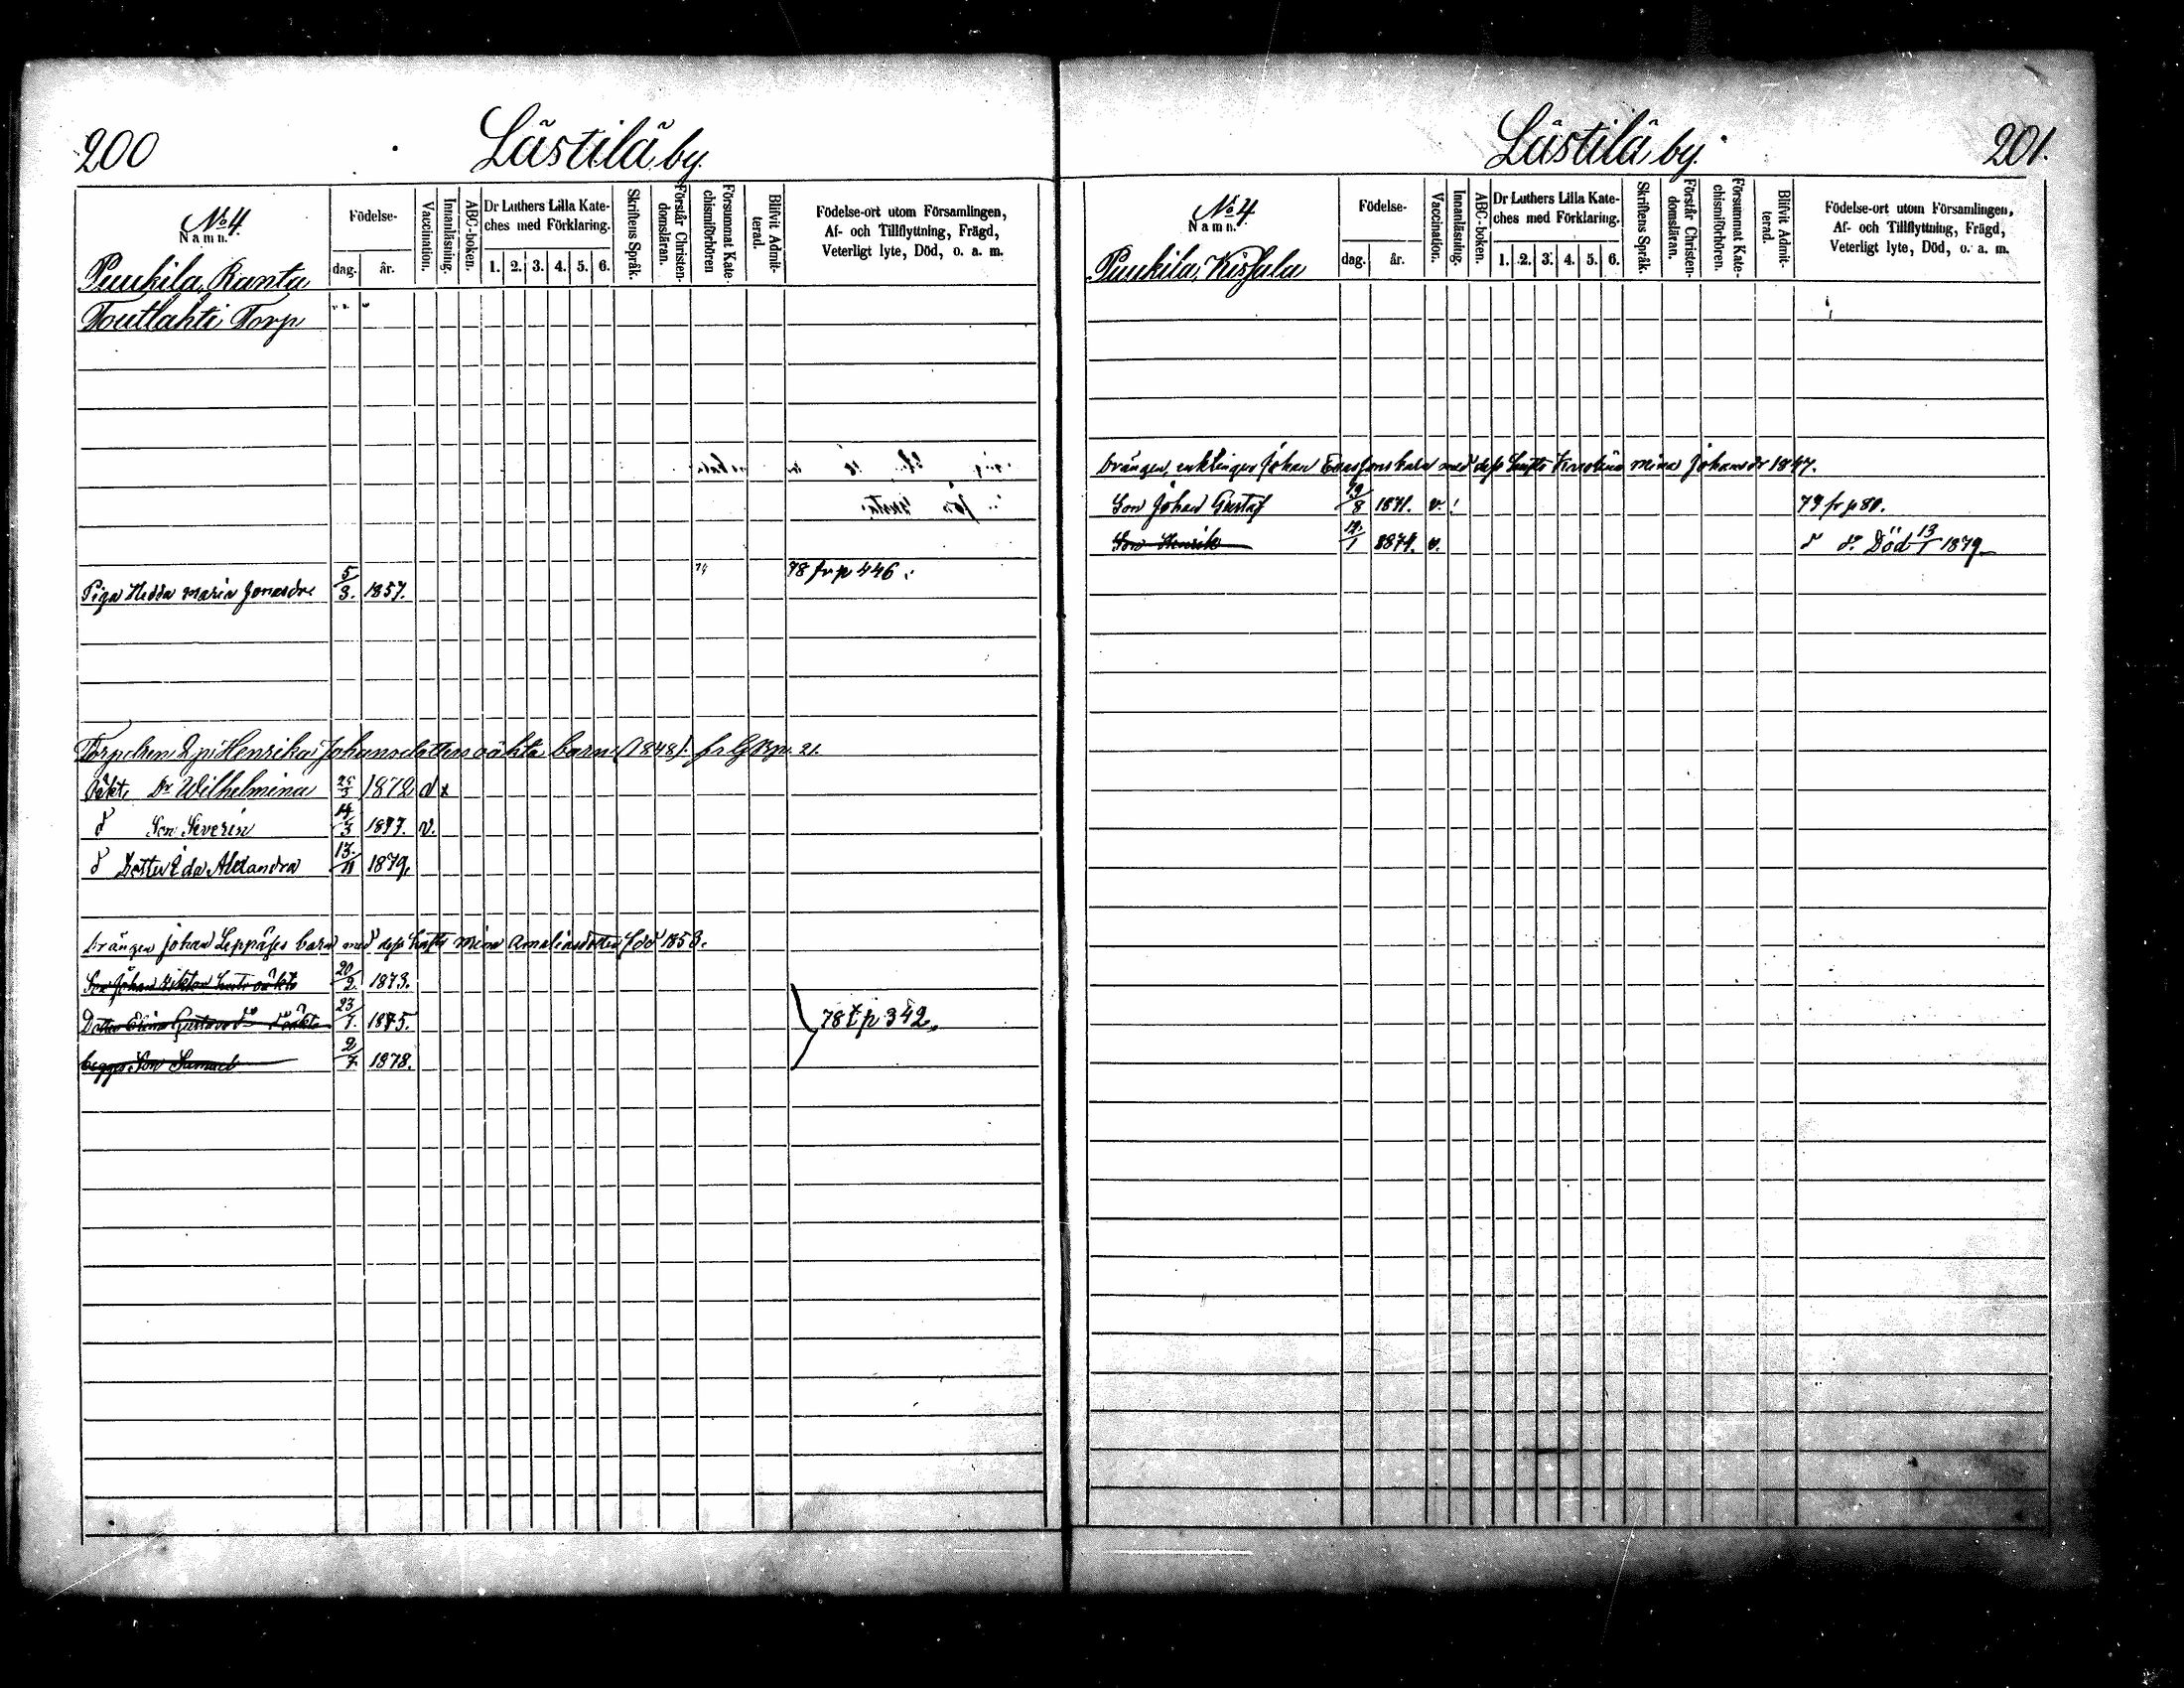 200
Lästilä by.
No 4
Namn.
Födelse-
dag.
år.
Vaccination.
Innanläsning.
ABC-boken.
Dr Luthers Lilla Kate-
ches med Förklaring.
1. 2. 3. 4. 5. 6.
Skriftens Språk.
Förstår Christen-
domsläran.
Försummat Kate-
chismiförhören
Blifvit Admit-
terad.
Födelse-ort utom Församlingen,
Af- och Tillflyttning, Frägd,
Veterligt lyte, Död, o. a. m.
Puukila, Ranta
Torp
78 fr p 446
Piga Hedda Maria Jonasdr 5/3. 1857.
Henrika Johansdotters oäkta barn (1848). fr p. 21.
Oäkt. Dr Wilhelmina 1872
do Son Severin 14/3 1877. v.
do Dotter Ida Alexandra 13./11 1879.
Drängen Johan Leppäjes barn med dess hustru Mina Amaliasdotter född 1853.
Son Johan Viktor oäkta 20/2. 1873.
Dotter Gustava oäkta 23/1. 1875.
78 t p 342.
begges Son Samuel 2/7 1878.
Lästilä by.
201.
No 4
Namn.
Födelse-
dag.
år.
Vaccination.
Innanläsning.
ABC-boken.
Dr Luthers Lilla Kate-
ches med Förklaring.
1. 2. 3. 4. 5. 6.
Skriftens Språk.
Förstår Christen-
domsläran.
Försummat Kate-
chismiförhören.
Blifvit Admit-
terad.
Födelse-ort utom Församlingen,
Af- och Tillflyttning, Frägd,
Veterligt lyte, Död, o. a. m.
Puukila,
Drängen, enklingen Johan barn med dess hustru Karolina Mina Johansdr 1847.
Son Johan Gustaf 19/8 1871. v. 79 fr p 80.
Son Henrik 12/1 1874. v. do do Död 13/1 1879